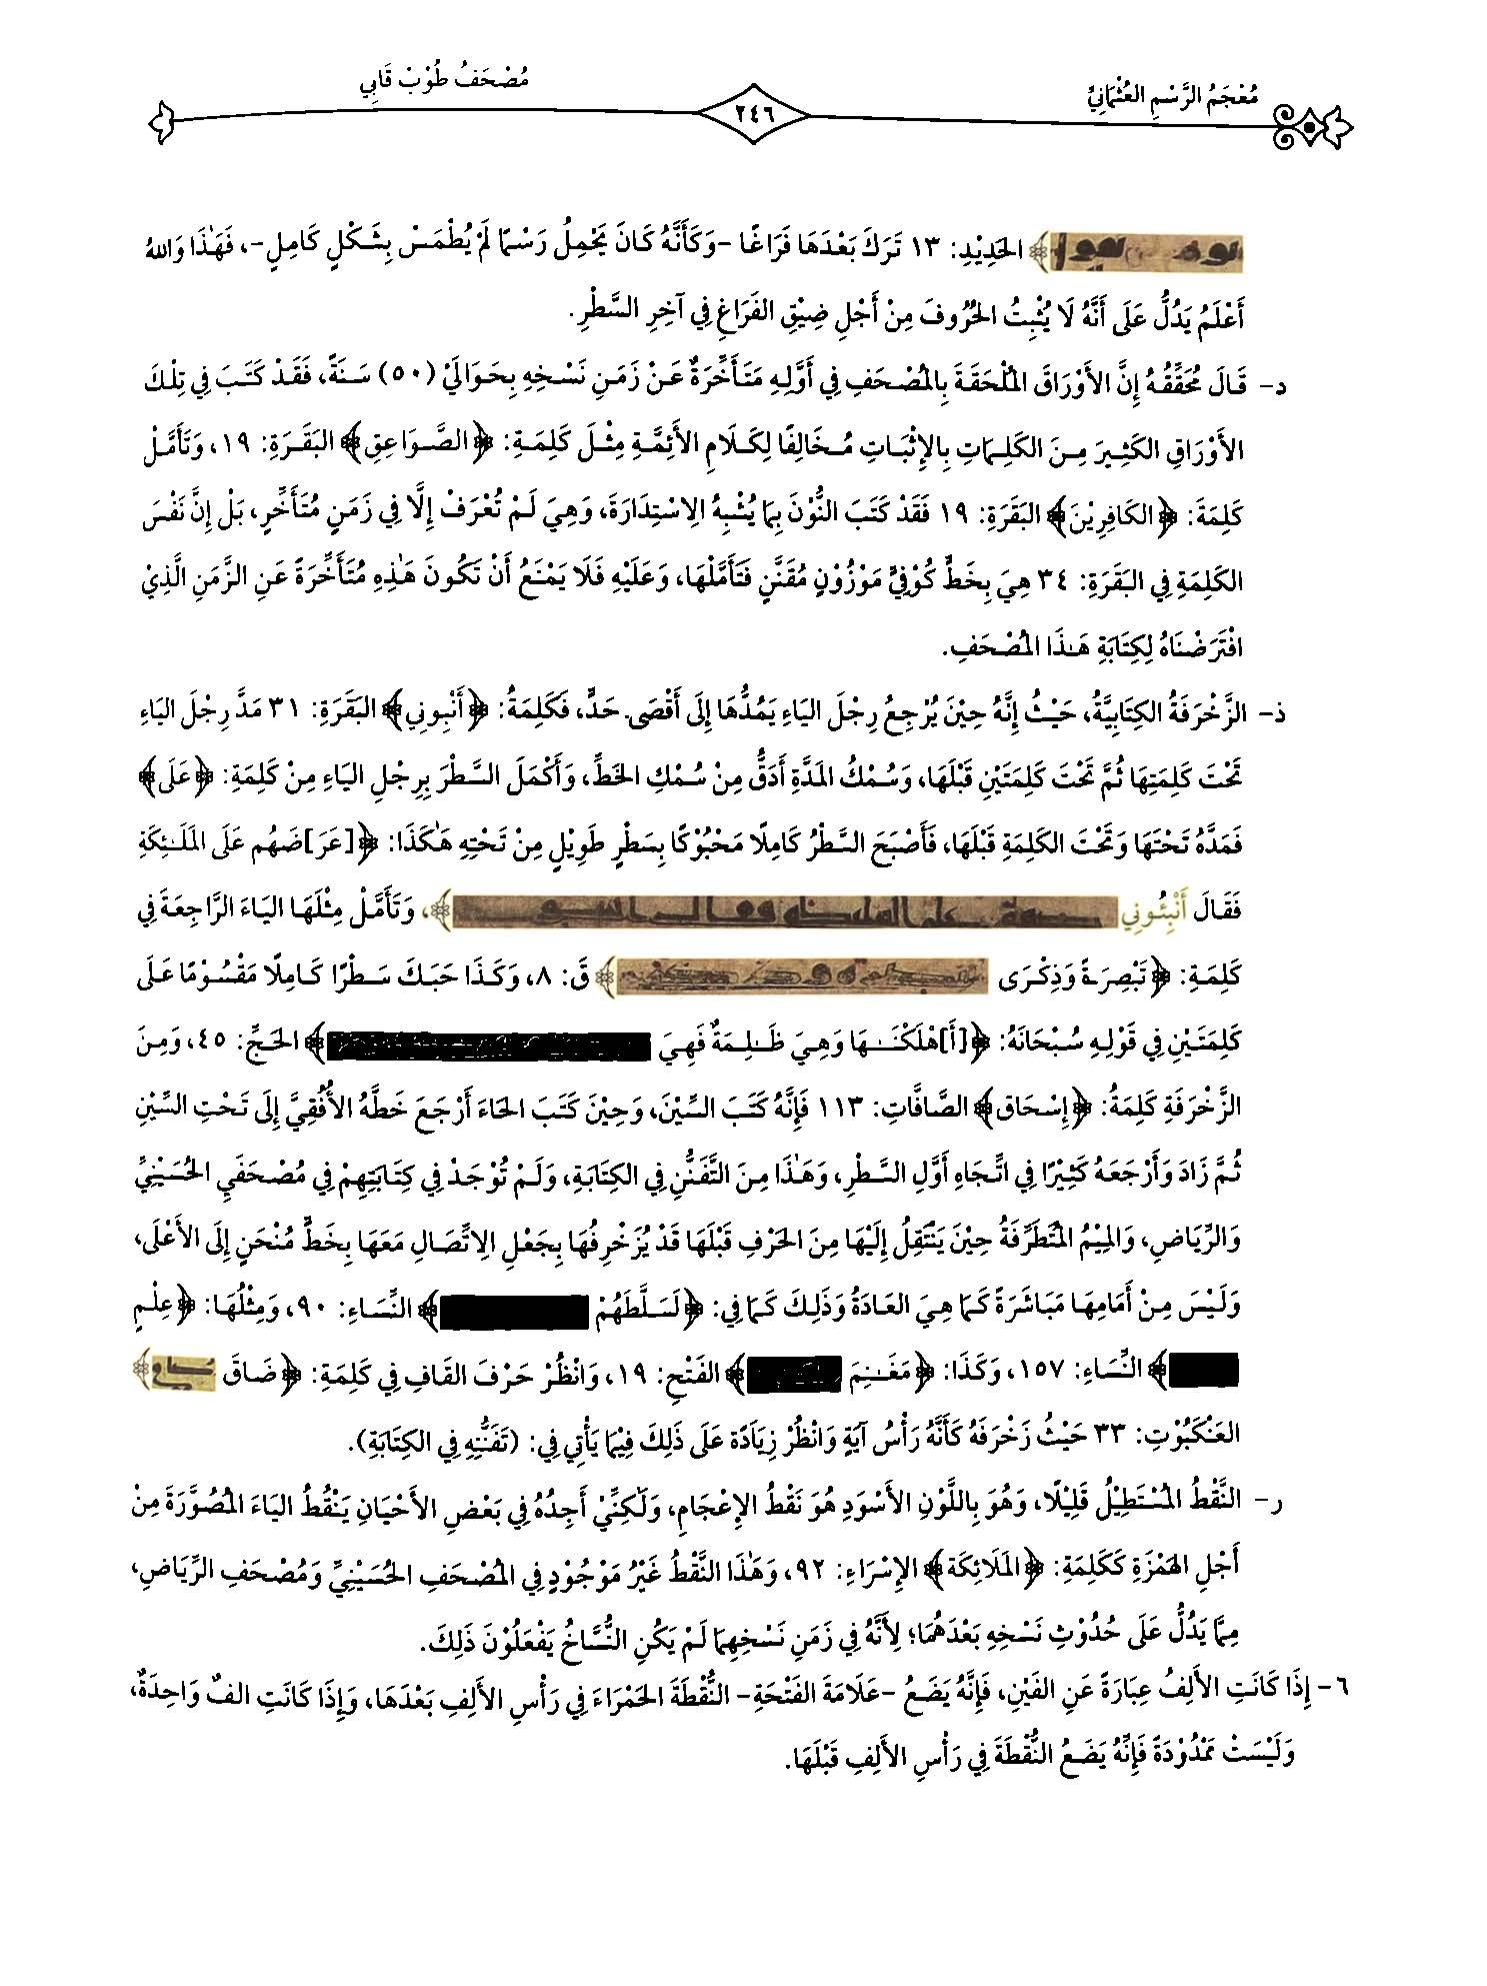 مُعْجَمُ الرَّسْمِ العُثْمَانِيِّ
٢٤٦
مُصْحَفُ طُوْبْ قَابِي
﴾ الحَدِيْدِ: ١٣ تَرَكَ بَعْدَهَا فَرَاغًا -وَكَأَنَّهُ كَانَ يَحْمِلُ رَسْمًا لَمْ يُطْمَسْ بِشَكْلٍ كَامِلٍ-، فَهَٰذَا وَاللهُ
أَعْلَمُ يَدُلُّ عَلَى أَنَّهُ لَا يُثْبِتُ الحُرُوفَ مِنْ أَجْلِ ضِيْقِ الفَرَاغِ فِي آخِرِ السَّطْرِ.
د- قَالَ مُحَقِّقُهُ إِنَّ الأَوْرَاقَ المُلْحَقَةَ بِالمُصْحَفِ فِي أَوَّلِهِ مَتَأَخِّرَةٌ عَنْ زَمَنِ نَسْخِهِ بِحَوَالَيْ (٥٠) سَنَةً، فَقَدْ كَتَبَ فِي تِلْكَ
الأَوْرَاقِ الكَثِيرَ مِنَ الكَلِمَاتِ بِالإِثْبَاتِ مُخَالِفًا لِكَلَامِ الأَئِمَّةِ مِثْلَ كَلِمَةِ: ﴿الصَّوَاعِقِ﴾ البَقَرَةِ: ١٩، وَتَأَمَّلْ
كَلِمَةَ: ﴿الكَافِرِيْنَ﴾ البَقَرَةِ: ١٩ فَقَدْ كَتَبَ النُّوْنَ بِمَا يُشْبِهُ الِاسْتِدَارَةَ، وَهِيَ لَمْ تُعْرَفْ إِلَّا فِي زَمَنٍ مُتَأَخِّرٍ، بَلْ إِنَّ نَفْسَ
الكَلِمَةِ فِي البَقَرَةِ: ٣٤ هِيَ بِخَطٍّ كُوْفِيٍّ مَوْزُوْنٍ مُقَنَّنٍ فَتَأَمَّلْهَا، وَعَلَيْهِ فَلَا يَمْنَعُ أَنْ تَكُونَ هَٰذِهِ مُتَأَخِّرَةً عَنِ الزَّمَنِ الَّذِيْ
افْتَرَضْنَاهُ لِكِتَابَةِ هَٰذَا المُصْحَفِ.
ذ- الزَّخْرَفَةُ الكِتَابِيَّةُ، حَيْثُ إِنَّهُ حِيْنَ يُرْجِعُ رِجْلَ اليَاءِ يَمُدُّهَا إِلَى أَقْصَى حَدٍّ، فَكَلِمَةُ: ﴿أَنْبِوني﴾ البَقَرَةِ: ٣١ مَدَّ رِجْلَ اليَاءِ
تَحْتَ كَلِمَتِهَا ثُمَّ تَحْتَ كَلِمَتَيْنِ قَبْلَهَا، وَسُمْكُ المَدَّةِ أَدَقُّ مِنْ سُمْكِ الخَطِّ، وَأَكْمَلَ السَّطْرَ بِرِجْلِ اليَاءِ مِنْ كَلِمَةِ: ﴿عَلَى﴾
فَمَدَّهُ تَحْتَهَا وَتَحْتَ الكَلِمَةِ قَبْلَهَا، فَأَصْبَحَ السَّطْرُ كَامِلًا مَحْبُوْكًا بِسَطْرٍ طَوِيْلٍ مِنْ تَحْتِهِ هَٰكَذَا: ﴿[عَرَ]ضَهُم عَلَى المَلَٰئِكَةِ
فَقَالَ أَنْبِـُٔونِي ﴾، وَتَأَمَّلْ مِثْلَهَا اليَاءَ الرَّاجِعَةَ فِي
كَلِمَةِ: ﴿تَبْصِرَةً وَذِكْرَى ﴾ قَ: ٨، وَكَذَا حَبَكَ سَطْرًا كَامِلًا مَقْسُوْمًا عَلَى
كَلِمَتَيْنِ فِي قَوْلِهِ سُبْحَانَهُ: ﴿[أَ]هْلَكْنَٰهَا وَهِيَ ظَٰلِمَةٌ فَهِيَ ﴾ الحَجِّ: ٤٥، وَمِنَ
الزَّخْرَفَةِ كَلِمَةُ: ﴿إِسْحَاق﴾ الصَّافَّاتِ: ١١٣ فَإِنَّهُ كَتَبَ السِّيْنَ، وَحِيْنَ كَتَبَ الحَاءَ أَرْجَعَ خَطَّهُ الأُفُقِيَّ إِلَى تَحْتِ السِّيْنِ
ثُمَّ زَادَ وَأَرْجَعَهُ كَثِيْرًا فِي اتِّجَاهِ أَوَّلِ السَّطْرِ، وَهَٰذَا مِنَ التَّفَنُّنِ فِي الكِتَابَةِ، وَلَمْ تُوْجَدْ فِي كِتَابَتِهِمْ فِي مُصْحَفَيِ الحُسَيْنِيِّ
وَالرِّيَاضِ، وَالمِيْمُ المُتَطَرِّفَةُ حِيْنَ يَنْتَقِلُ إِلَيْهَا مِنَ الحَرْفِ قَبْلَهَا قَدْ يُزَخْرِفُهَا بِجَعْلِ الِاتِّصَالِ مَعَهَا بِخَطٍّ مُنْحَنٍ إِلَى الأَعْلَى،
وَلَيْسَ مِنْ أَمَامِهَا مَبَاشَرَةً كَمَا هِيَ العَادَةُ وَذَلِكَ كَمَا فِي: ﴿لَسَلَّطَهُمْ ﴾ النِّسَاءِ: ٩٠، وَمِثْلُهَا: ﴿عِلْمٍ
﴾ النِّسَاءِ: ١٥٧، وَكَذَا: ﴿مَغَٰنِمَ ﴾ الفَتْحِ: ١٩، وَانْظُرْ حَرْفَ القَافِ فِي كَلِمَةِ: ﴿ضَاقَ ﴾
العَنْكَبُوْتِ: ٣٣ حَيْثُ زَخْرَفَهُ كَأَنَّهُ رَأْسُ آيَةٍ وَانْظُرْ زِيَادَة عَلَى ذَلِكَ فِيْمَا يَأْتِي فِي: (تَفَنُّنِهِ فِي الكِتَابَةِ).
ر- النَّقْطُ المُسْتَطِيْلُ قَلِيْلًا، وَهُوَ بِاللَّوْنِ الأَسْوَدِ هُوَ نَقْطُ الإِعْجَامِ، وَلَٰكِنِّيْ أَجِدُهُ فِي بَعْضِ الأَحْيَانِ يَنْقُطُ اليَاءَ المُصُوَّرَةَ مِنْ
أَجْلِ الهَمْزَةِ كَكَلِمَةِ: ﴿المَلَائِكَة﴾ الإِسْرَاءِ: ٩٢، وَهَٰذَا النَّقْطُ غَيْرُ مَوْجُوْدٍ فِي المُصْحَفِ الحُسَيْنِيِّ وَمُصْحَفِ الرِّيَاضِ،
مِمَّا يَدُلُّ عَلَى حُدُوْثِ نَسْخِهِ بَعْدَهُمَا؛ لِأَنَّهُ فِي زَمَنِ نَسْخِهِمَا لَمْ يَكُنِ النُّسَّاخُ يَفْعَلُوْنَ ذَلِكَ.
٦- إِذَا كَانَتِ الأَلِفُ عِبَارَةً عَنِ الفَيْنِ، فَإِنَّهُ يَضَعُ -عَلَامَةَ الفَتْحَةِ- النُّقْطَةَ الحَمْرَاءَ فِي رَأْسِ الأَلِفِ بَعْدَهَا، وَإِذَا كَانَتِ الفٌ وَاحِدَةٌ،
وَلَيْسَتْ مَمْدُوْدَةً فَإِنَّهُ يَضَعُ النُّقْطَةَ فِي رَأْسِ الأَلِفِ قَبْلَهَا.